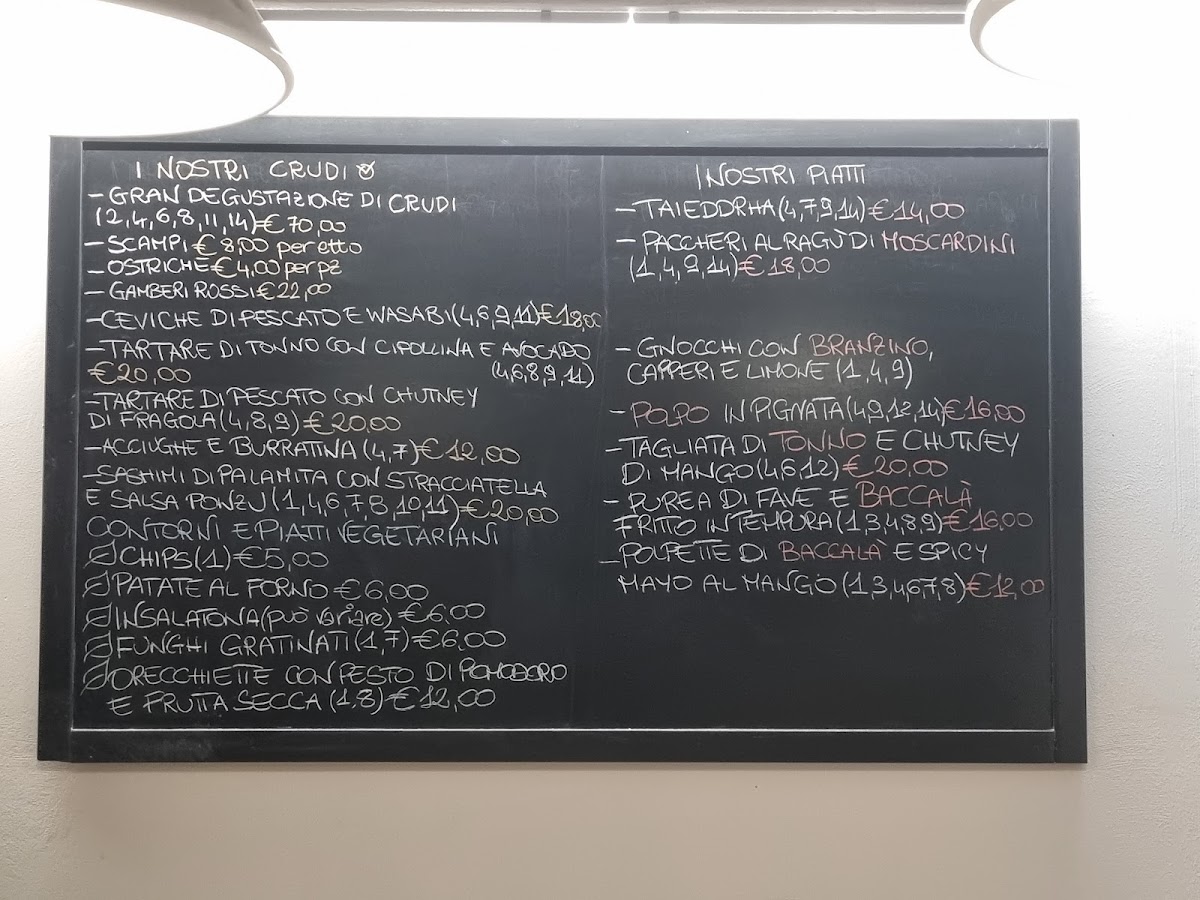 I NOSTRI CRUDI
- GRAN DEGUSTAZIONE DI CRUDI
(2,4,6,8,11,14) € 70,00
- SCAMPI € 8,00 per etto
- OSTRICHE € 4,00 per pz
- GAMBERI ROSSI € 22,00
- CEVICHE DI PESCATO E WASABI (4,6,9,11) € 18,00
- TARTARE DI TONNO CON CIPOLLINA E AVOCADO
€ 20,00 (4,6,8,9,11)
- TARTARE DI PESCATO CON CHUTNEY
DI FRAGOLA (4,8,9) € 20,00
- ACCIUGHE E BURRATINA (4,7) € 12,00
- SASHIMI DI PALAMITA CON STRACCIATELLA
E SALSA PONZU (1,4,6,7,8,10,11) € 20,00
CONTORNI E PIATTI VEGETARIANI
CHIPS (1) € 5,00
PATATE AL FORNO € 6,00
INSALATONA (può variare) € 6,00
FUNGHI GRATINATI (1,7) € 6,00
ORECCHIETTE CON PESTO DI POMODORO
E FRUTTA SECCA (1,8) € 12,00
I NOSTRI PIATTI
- TAIEDDRHA (4,7,9,14) € 14,00
- PACCHERI AL RAGÙ DI MOSCARDINI
(1,4,9,14) € 18,00
- GNOCCHI CON BRANZINO,
CAPPERI E LIMONE (1,4,9)
- POLPO IN PIGNATA (4,9,12,14) € 16,00
- TAGLIATA DI TONNO E CHUTNEY
DI MANGO (4,6,12) € 20,00
- PUREA DI FAVE E BACCALÀ
FRITTO IN TEMPURA (1,3,4,8,9) € 16,00
- POLPETTE DI BACCALÀ E SPICY
MAYO AL MANGO (1,3,4,6,7,8) € 12,00